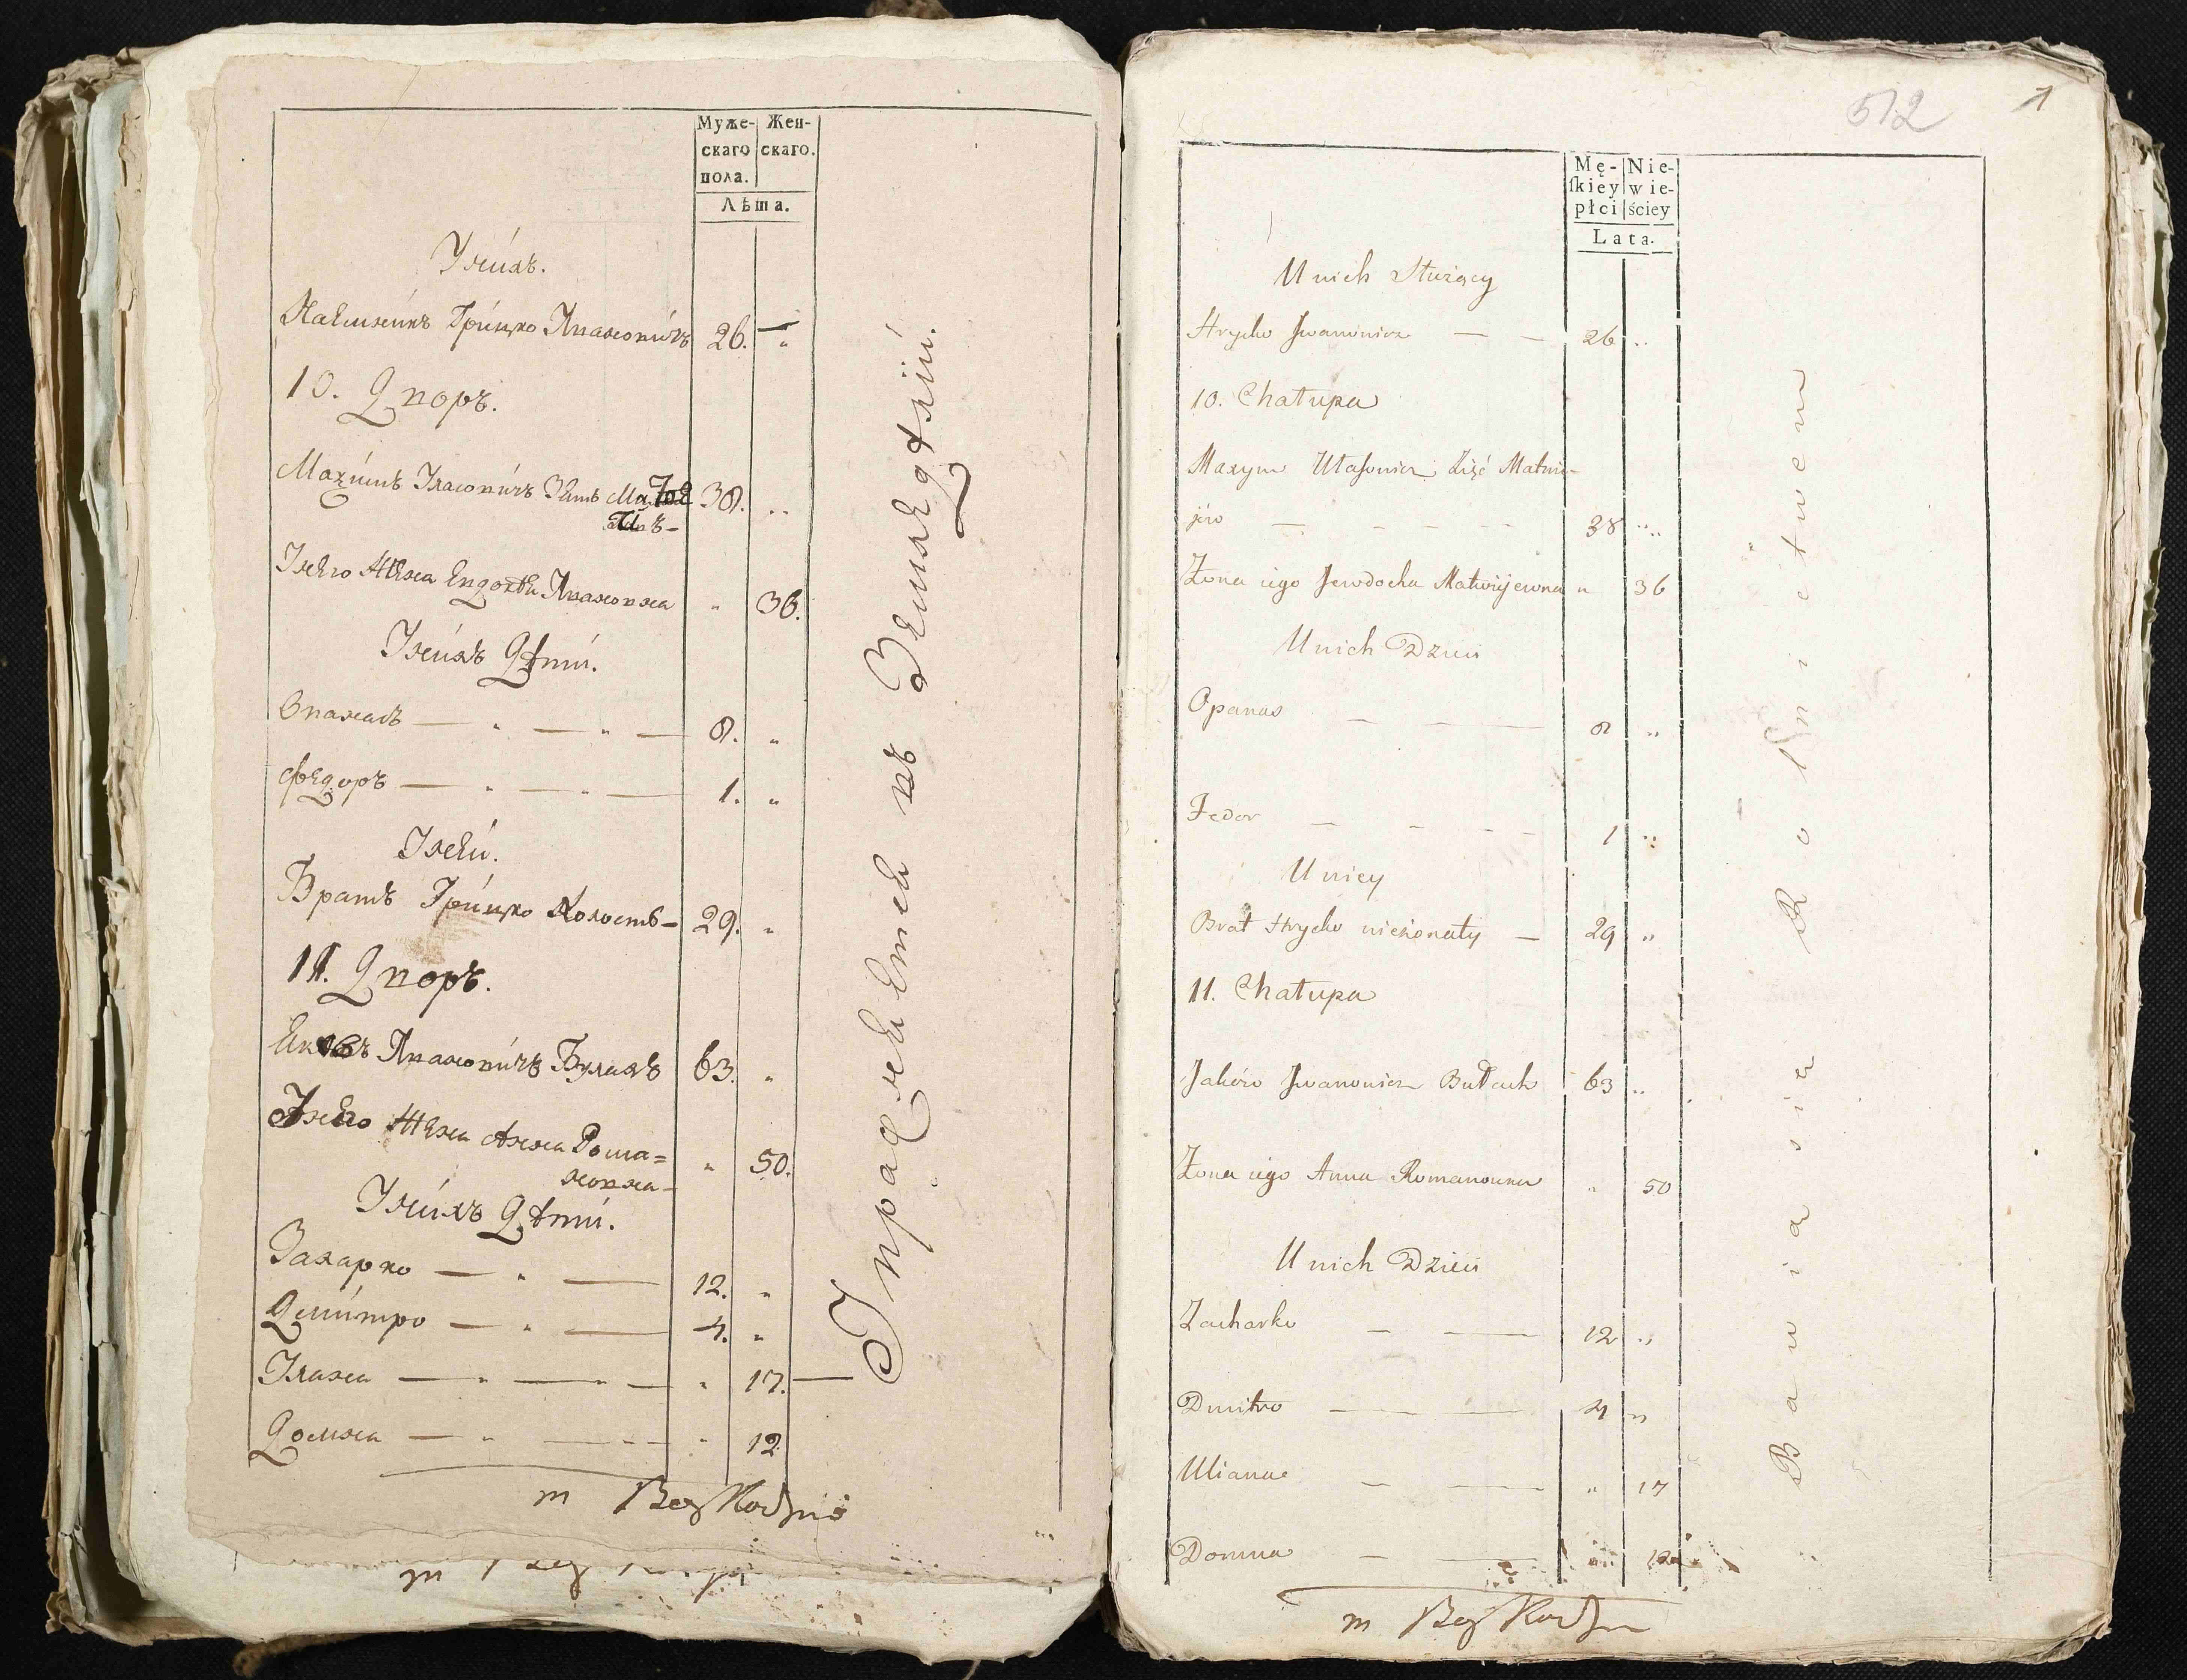 Муже-
скаго
пола.
Жен-
скаго.
Лѣта.
Унихъ.
Наемникъ Грицко Ивановичъ 26. "
10. Дворъ.
Максимъ Уласовичъ Зять Матвѣ 38. "
Унего Жена Евдокѣя Ивановна " 36.
Унихъ Дѣти.
Опанасъ — " — " — 8. "
Федоръ — " — " — 1. "
Унеи.
Братъ Грицко Холостъ — 29. "
11. Дворъ.
Яковъ Ивановичъ Булахъ 63. "
Унего Жена Анна Рома=
новна — " 50.
Унихъ Дѣти.
Захарко — " — 12. "
Дмитро — " — 4. "
Уляна — " — " — " 17. —
Домна — " — " — " 12
Упражняется въ Земледѣліи.
m
512
1
Mę-
ſkiey
płci
Nie-
wie-
ściey
Lata.
U nich Służący
Hrycko Jwanowicz — — 26 "
10. Chałupa
Maxym Ułasowicz Zięć Matwi-
jów — - - - - 38 "
Żona iego Jewdocha Matwijewna " 36
U nich Dzieci
Opanas — — — 8 "
Fedor — - - - 1 "
U niey
Brat Hrycko nieżonaty — 29 "
11. Chałupa
Jaków Jwanowicz Bułach 63 "
Żona iego Anna Romanowna " 50
U nich Dzieci
Zacharko — - — 12 "
Dmitro — — — 4 "
Uliana — — — " 17
Domna — — " 12
Bawia sie Rolnictwem
m